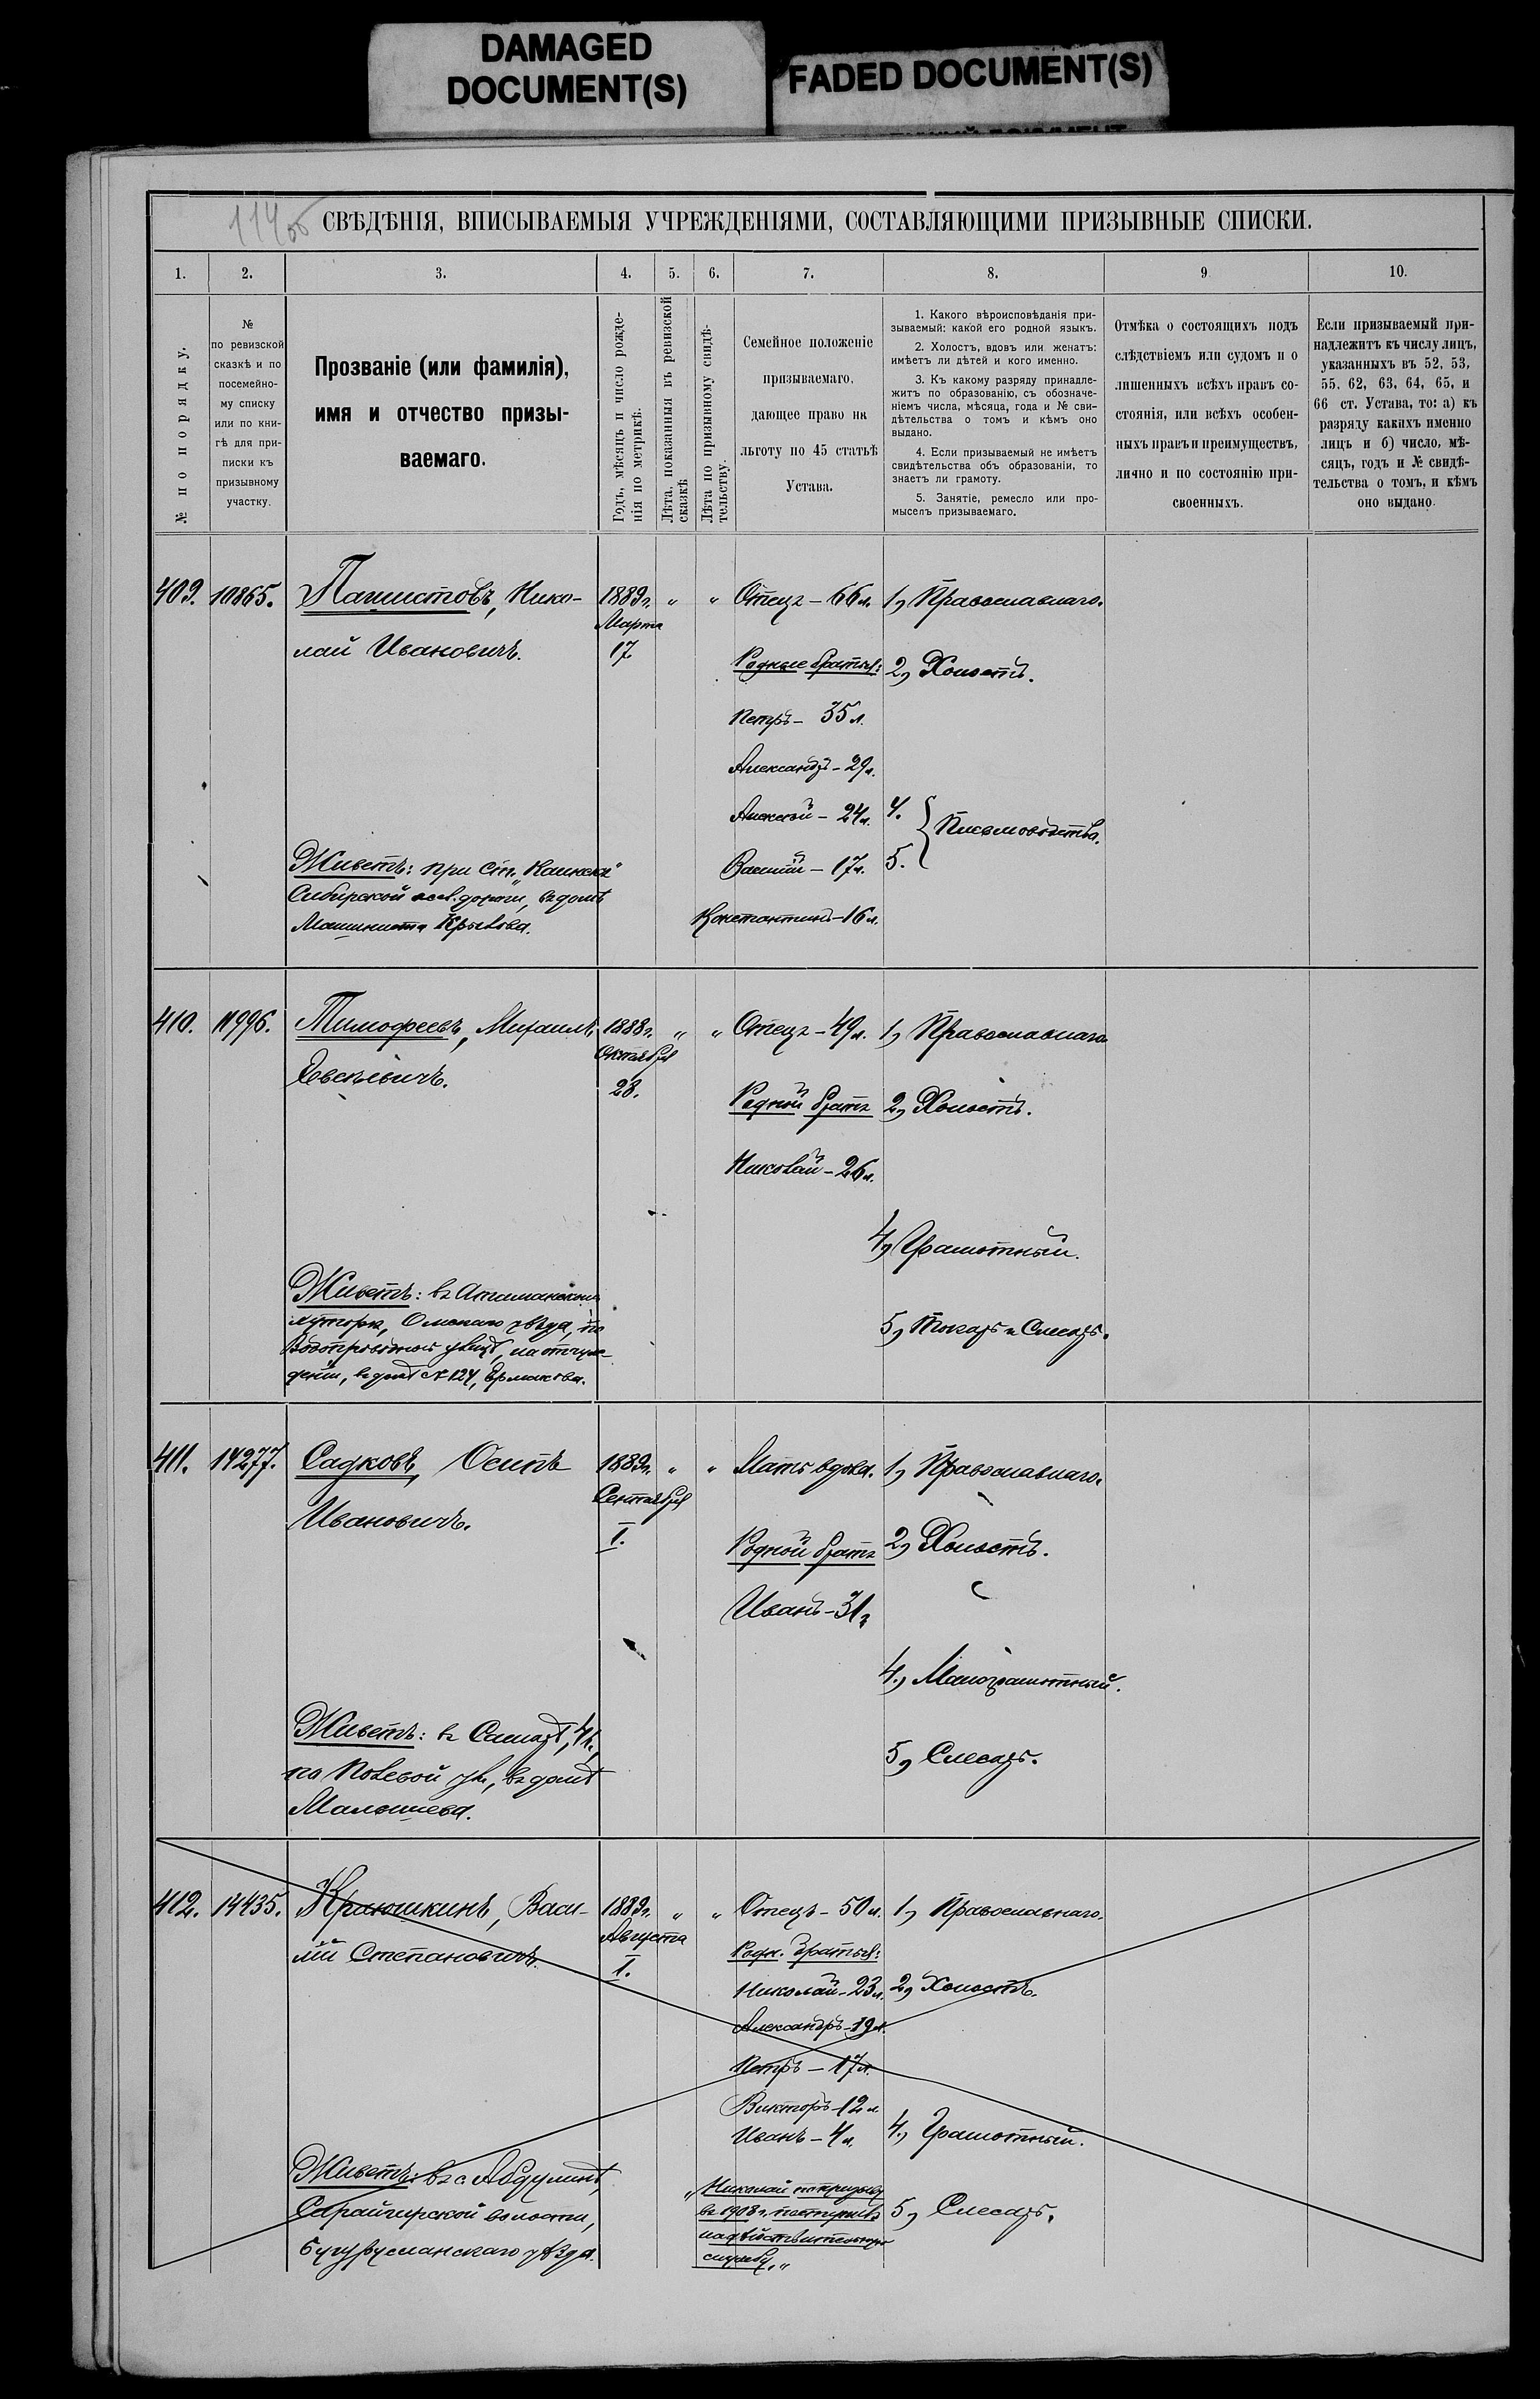 DAMAGED
DOCUMENT(S)
FADED DOCUMENT(S)
114 об
СВѢДѢНІЯ, ВПИСЫВАЕМЫЯ УЧРЕЖДЕНІЯМИ, СОСТАВЛЯЮЩИМИ ПРИЗЫВНЫЕ СПИСКИ.
1. 2. 3. 4. 5. 6. 7. 8. 9 10.
№ по порядку.
№
по ревизской
сказкѣ и по
посемейно-
му списку
или по кни-
гѣ для при-
писки къ
призывному
участку.
Прозваніе (или фамилія),
имя и отчество призы-
ваемаго.
Годъ, мѣсяцъ и число рожде-
нія по метрикѣ.
Лѣта, показанныя въ ревизской
сказкѣ
Лѣта по призывному свидѣ-
тельству.
Семейное положеніе
призываемаго,
дающее право на
льготу по 45 статьѣ
Устава.
1. Какого вѣроисповѣданія при-
зываемый: какой его родной языкъ.
2. Холостъ, вдовъ или женатъ:
имѣетъ ли дѣтей и кого именно.
3. Къ какому разряду принадле-
житъ по образованію, съ обозначе-
ніемъ числа, мѣсяца, года и № сви-
дѣтельства о томъ и кѣмъ оно
выдано.
4. Если призываемый не имѣетъ
свидѣтельства объ образованіи, то
знаетъ ли грамоту.
5. Занятіе, ремесло или про-
мыселъ призываемаго.
Отмѣка о состоящихъ подъ
слѣдствіемъ или судомъ и о
лишенныхъ всѣхъ правъ со-
стоянія, или всѣхъ особен-
ныхъ правъ и преимуществъ,
лично и по состоянію при-
своенныхъ.
Если призываемый при-
надлежитъ къ числу лицъ,
указанныхъ въ 52, 53,
55, 62, 63, 64, 65, и
66 ст. Устава, то: а) къ
разряду какихъ именно
лицъ и б) число, мѣ-
сяцъ, годъ и № свидѣ-
тельства о томъ, и кѣмъ
оно выдано.
409. 10865. Пашистовъ, Нико- 1889г. " " Отецъ - 66 л. 1, Православнаго.
Марта
лай Ивановичъ. 17 Родные братья: 2, Холостъ.
Петръ - 35 л.
Александръ - 29 л.
Алексѣй - 24 л. 4.
Письмоводства.
Живетъ: при Ст. "Каинскъ" Василій - 17 л. 5.
Сибирской жел. дороги, въ домѣ
Машиниста Крылова. Константинъ - 16 л.
410. 11996. Тимофеевъ, Михаилъ 1888г. " " Отецъ - 49 л. 1, Православнаго
Октября
Евсѣевичъ. 28. Родной братъ 2, Холостъ.
Николай - 26 л.
4, Грамотный.
Живетъ: въ Атаманскомъ
хуторѣ, Омскаго уѣзда, по 5, Токарь и Слесарь.
Водопроводной улицѣ, на отчуж-
деніи, въ домѣ № 124, Ермакова.
411. 14277. Садковъ, Осипъ 1889г. " " Мать вдова. 1, Православнаго.
Сентября
Ивановичъ. 1. Родной братъ 2, Холостъ.
Иванъ - 31 г
4., Малограмотный.
Живетъ: въ Самарѣ, 4 ч.,
по Полевой ул., въ домѣ 5, Слесарь.
Малышева.
412. 14435. Краюшкинъ, Васи- 1889г. " " Отецъ - 50 л. 1, Православнаго.
Августа
лій Степановичъ. 1. Родн. братья:
Николай - 23 л. 2, Холостъ.
Александръ - 19 л.
Петръ - 17 л.
Викторъ - 12 л
Иванъ - 4 л. 4., Грамотный.
Живетъ: въ с. Абдулинѣ, "Николай по призыву
Сарайгирской волости, въ 1908 г. поступилъ 5, Слесарь.
Бугурусланскаго уѣзда. на дѣйствительную
службу."